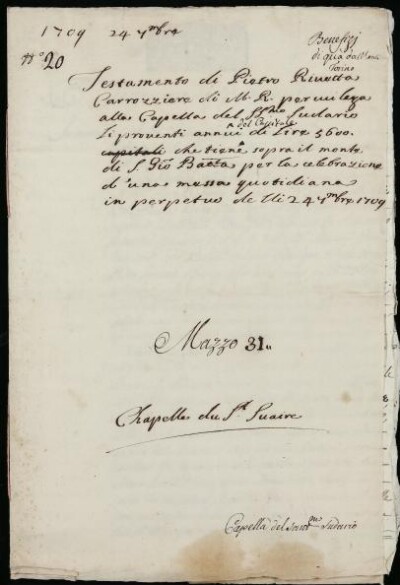 1709 24 7mbre
Benefizj
di quà dall'
Torino
N° 20
Testamento di Pietro
Carrozziere di M. R. per cui lega
alla Capella del SSmo Sudario
li proventi annui del Capitale de Lire 5600.
capitali che tiene sopra il monte
di S. Gio Batta per la celebrazione
d'una messa quotidiana
in perpetuo de lli 24 7mbre 1709
Mazzo 31.
Chapelle du St. Suaire
Capella del Sudario